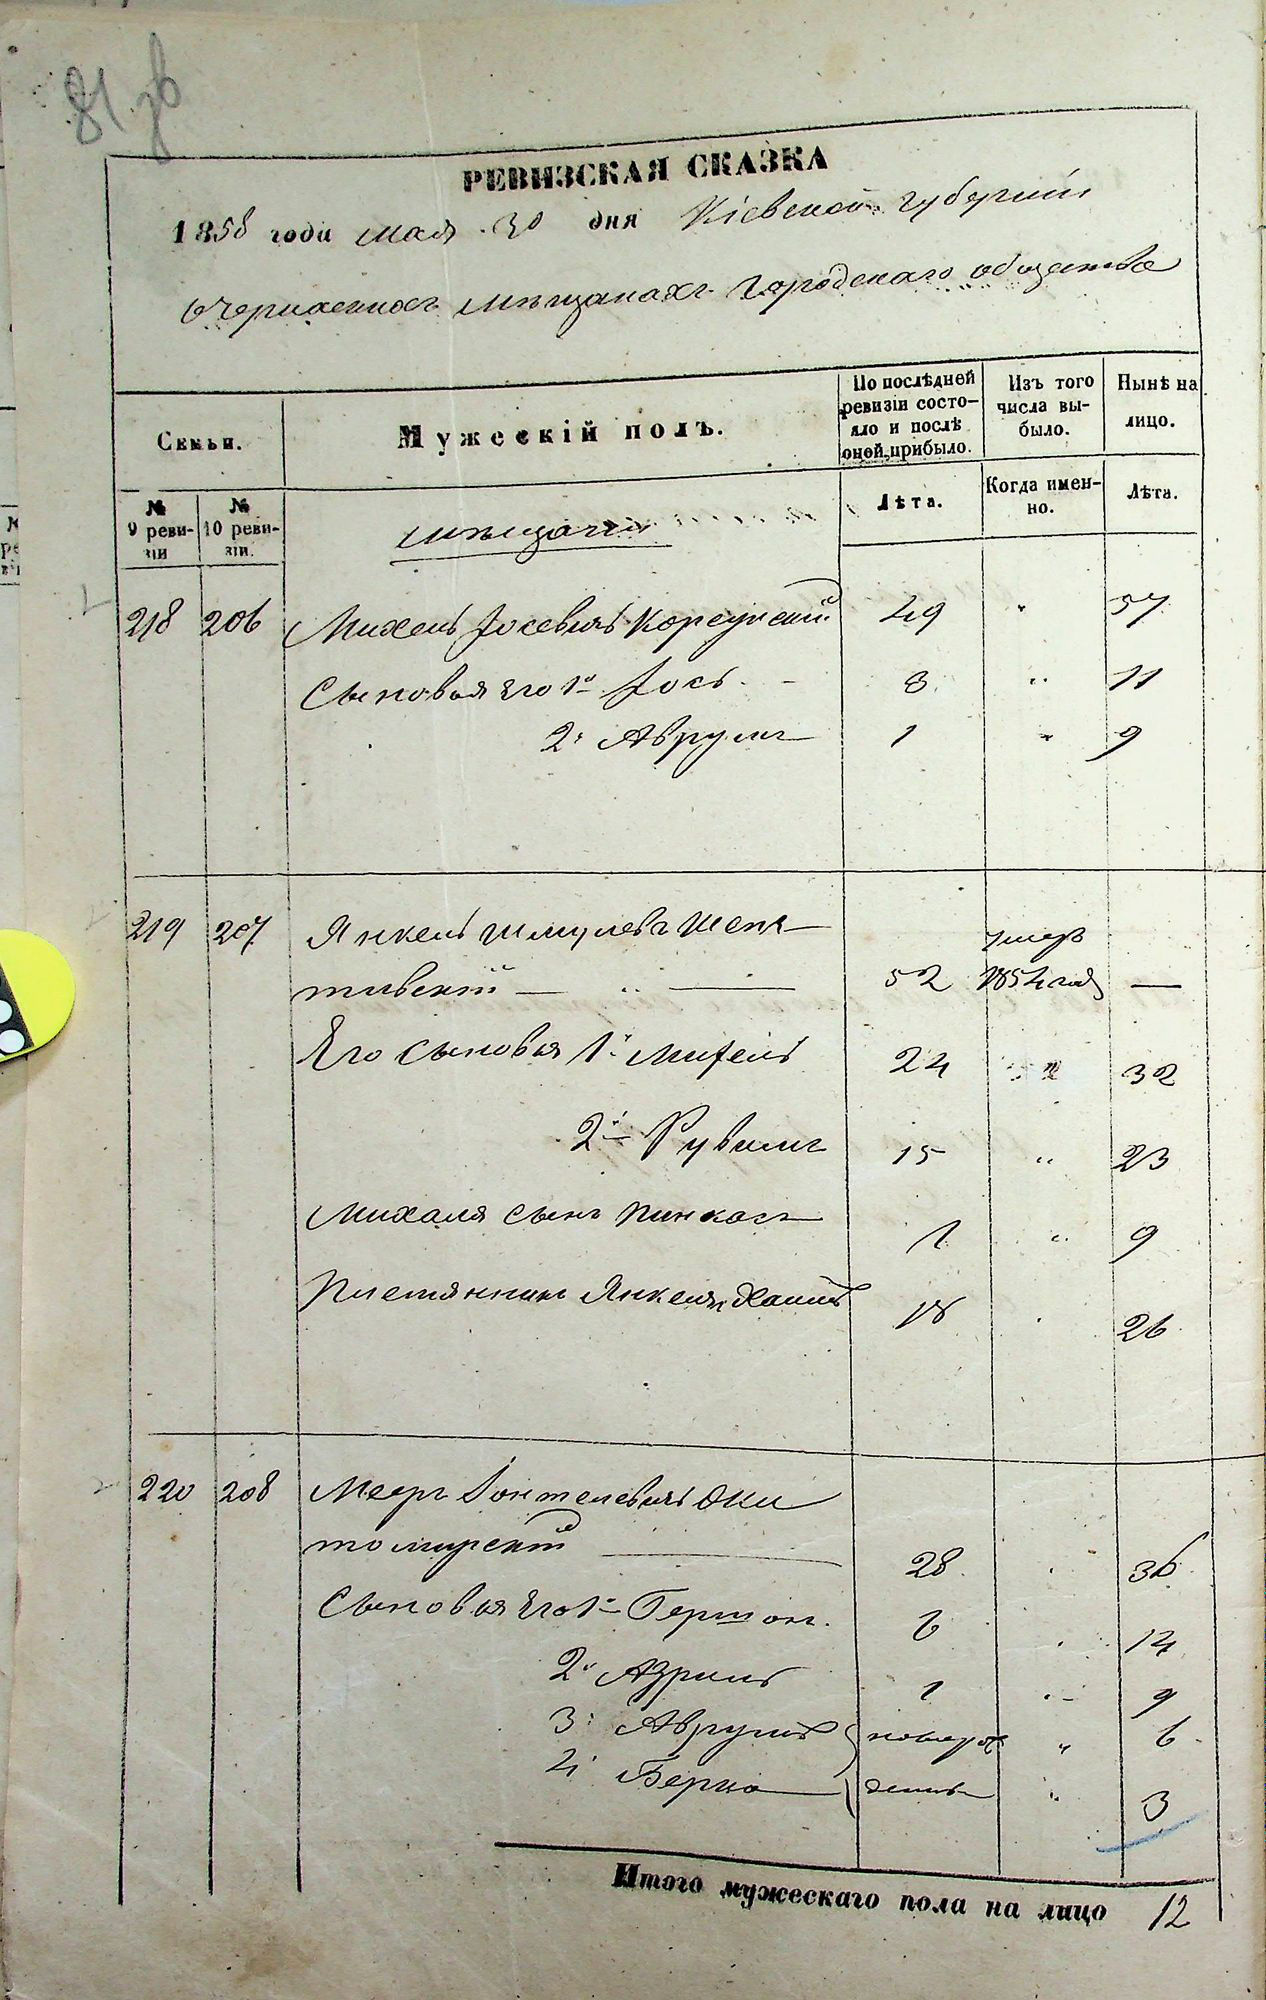 81 зв
РЕВИЗСКАЯ СКАЗКА
1858 года мая 30 дня Кіевской губерніи
о черкасскихъ мѣщанахъ городскаго общества
Семьи.
Мужескій полъ.
По послѣдней ревизіи состояло и послѣ оной прибыло.
Изъ того числа выбыло.
Нынѣ на лицо.
№ 9 ревизіи
№ 10 ревизіи.
мѣщане
Лѣта.
Когда именно.
Лѣта.
218 206 Михель Іосевичъ Корсунскій 49 " 57
Сыновья его 1й Іось - 3 " 11
2й Аврумъ 1 " 9
219 207 Янкель Шмулевъ Шепе-
тивскій — " — 52 умеръ 1854 года —
Его сыновья 1й Михель 24 " 32
2й Рувимъ 15 " 23
Михеля сынъ Пинхасъ 1 " 9
Племянникъ Янкеля 18 " 26
220 208 Мееръ Жи
томирскій — 28 " 36
Сыновья его 1й Гершонъ 6 " 14
2й Азриль 1 " 9
3й Аврумъ новорож " 6
4й Берко денъ " 3
Итого мужескаго пола на лицо 12